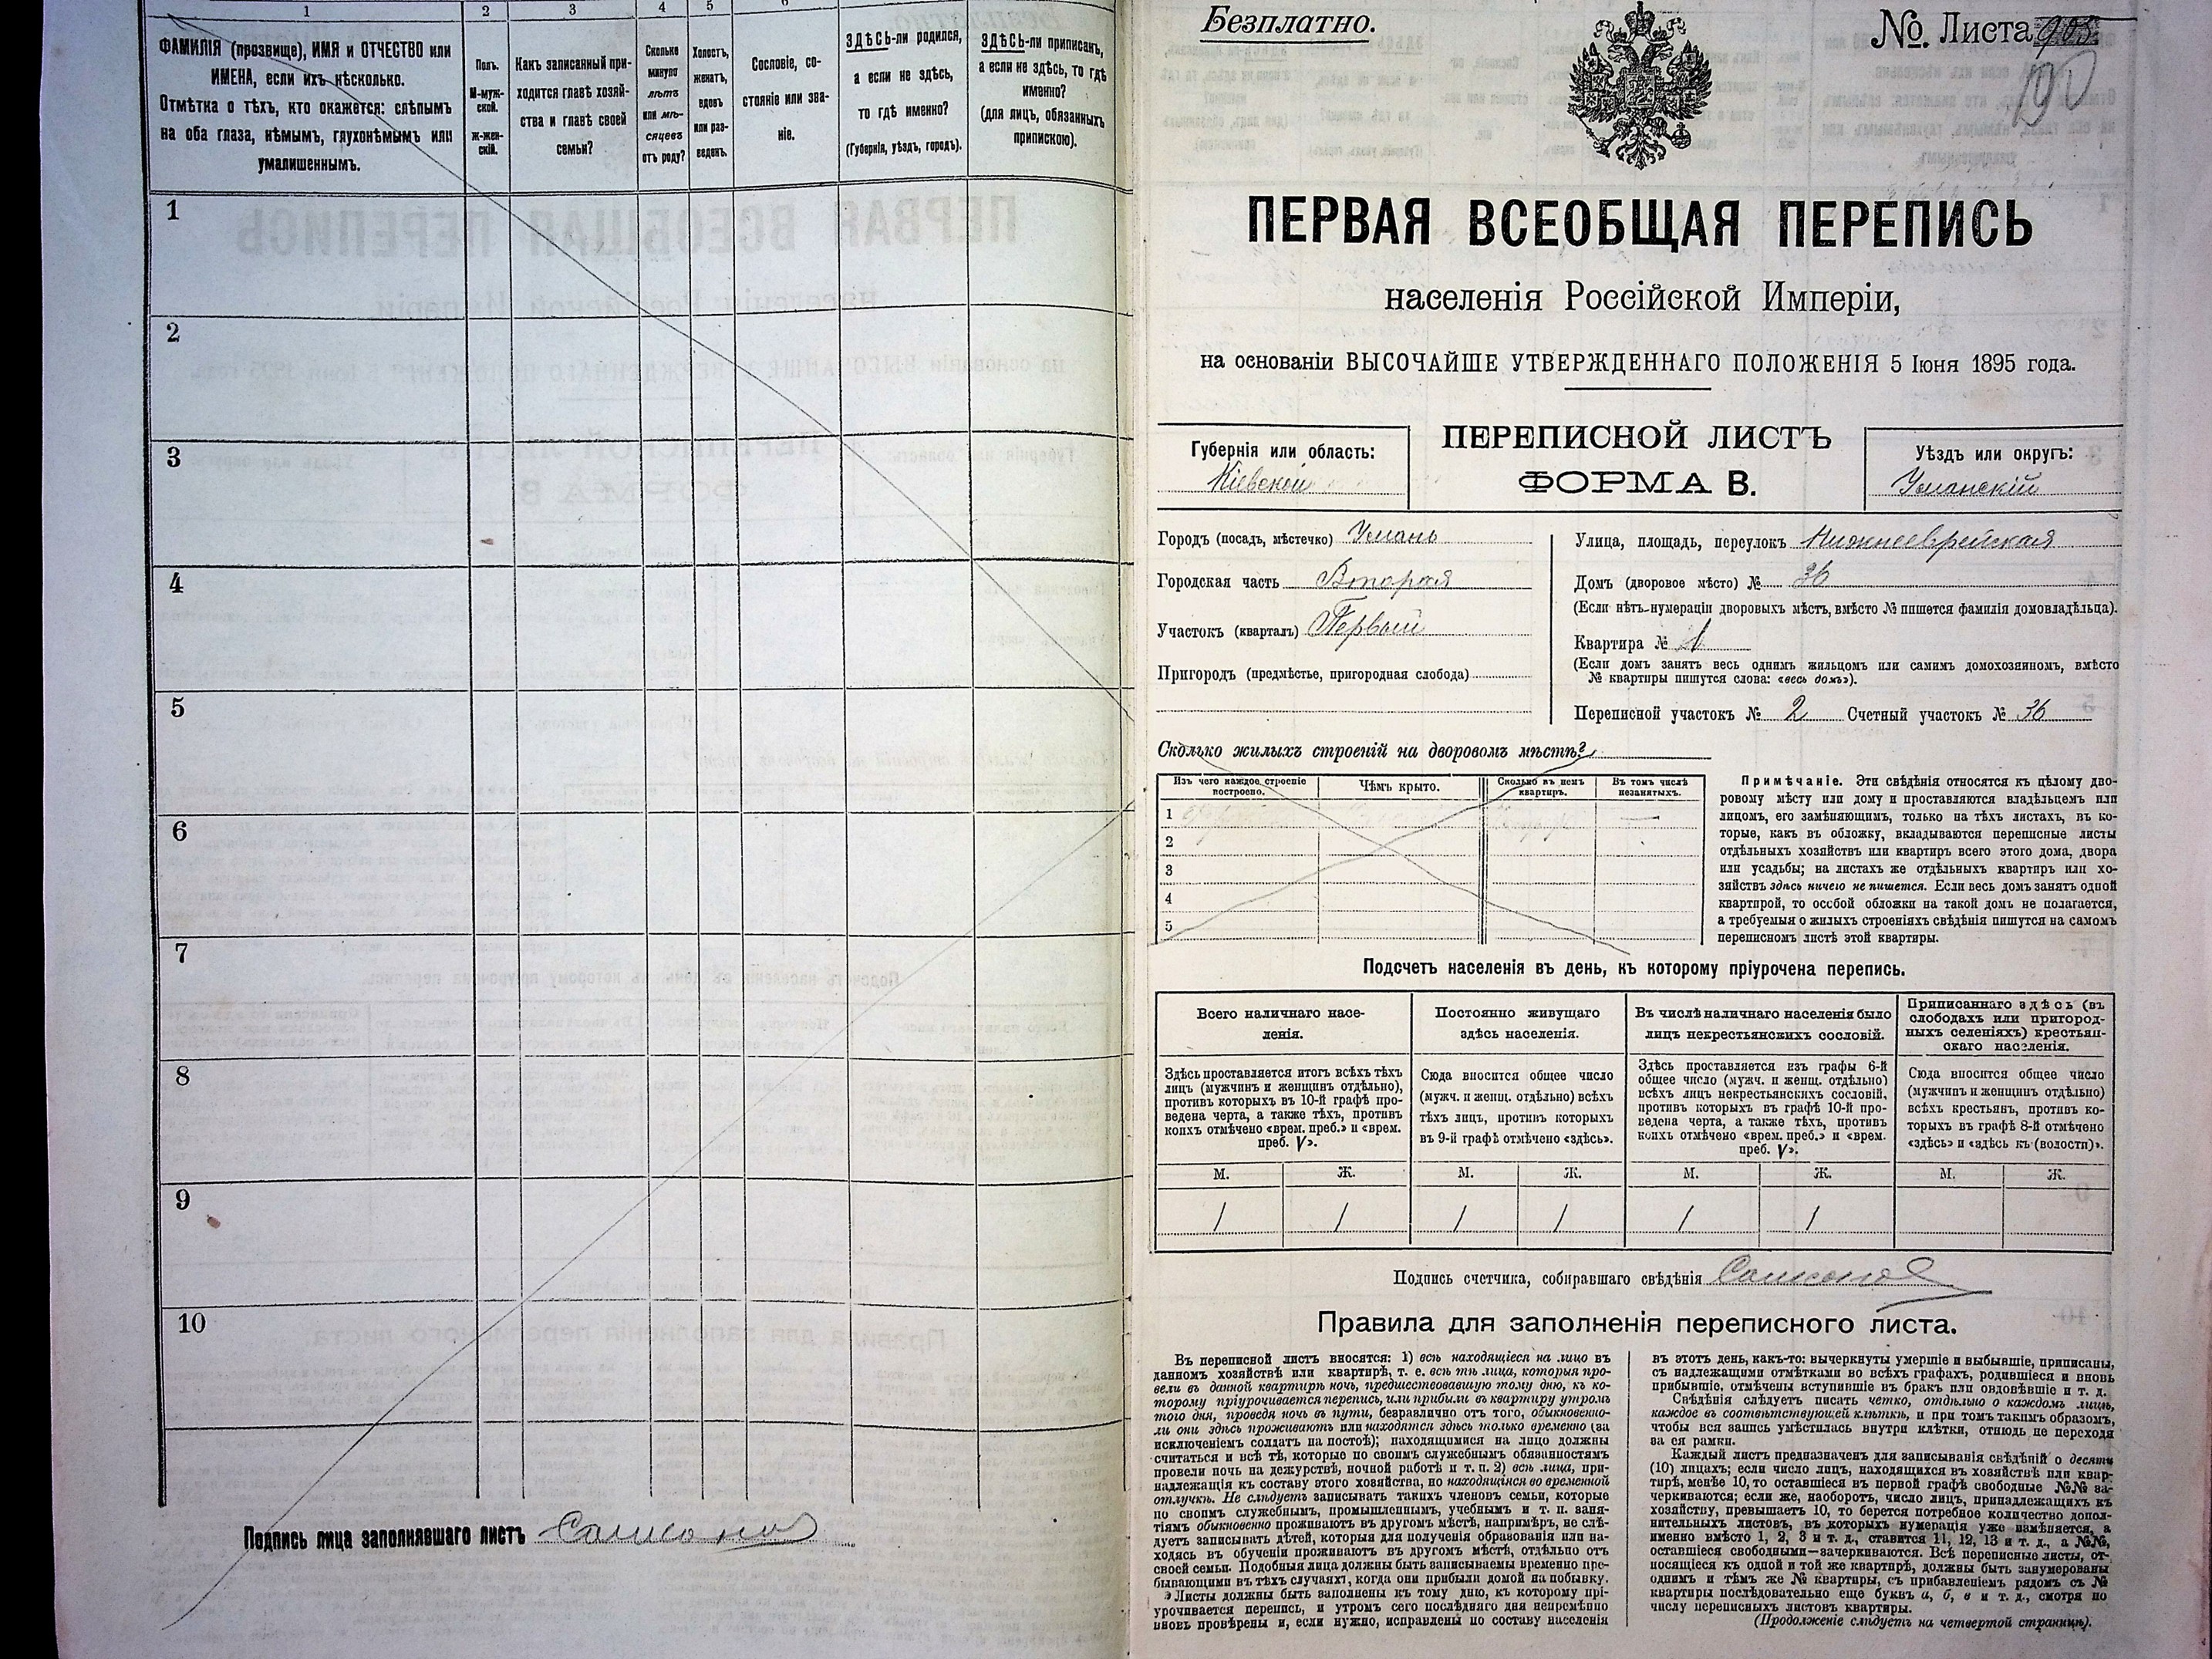 1 2 3 4 5 6
ФАМИЛІЯ (прозвище), ИМЯ и ОТЧЕСТВО или
ИМЕНА, если ихъ нѣсколько.
Отмѣтка о тѣхъ, кто окажется: слѣпымъ
на оба глаза, нѣмымъ, глухонѣмымъ или
умалишеннымъ.
Полъ.
М-муж-
ской.
ж-жен-
скій.
Какъ записанный при-
ходится главѣ хозяй-
ства и главѣ своей
семьи?
Сколько
минуло
лѣтъ
или мѣ-
сяцевъ
отъ роду?
Холостъ,
женатъ,
вдовъ
или раз-
веденъ.
Сословіе, со-
стояніе или зва-
ніе.
ЗДѢСЬ-ли родился,
а если не здѣсь,
то гдѣ именно?
(Губернія, уѣздъ, городъ).
ЗДѢСЬ-ли приписанъ,
а если не здѣсь, то гдѣ
именно?
(для лицъ, обязанныхъ
припискою).
1
2
3
4
5
6
7
8
9
10
Подпись лица заполнявшаго листъ
Безплатно.
№ Листа
ПЕРВАЯ ВСЕОБЩАЯ ПЕРЕПИСЬ
населенія Россійской Имперіи,
на основаніи ВЫСОЧАЙШЕ УТВЕРЖДЕННАГО ПОЛОЖЕНІЯ 5 Іюня 1895 года.
Губернія или область:
Кіевской
ПЕРЕПИСНОЙ ЛИСТЪ
ФОРМА В.
Уѣздъ или округъ:
Уманскій
Городъ (посадъ, мѣстечко) Умань
Городская часть Вторая
Участокъ (кварталъ) Первый
Пригородъ (предмѣстье, пригородная слобода)
Улица, площадь, переулокъ Нижнееврейская
Домъ (дворовое мѣсто) № 36
(Если нѣтъ нумераціи дворовыхъ мѣстъ, вмѣсто № пишется фамилія домовладѣльца).
Квартира №
(Если домъ занятъ весь однимъ жильцомъ или самимъ домохозяиномъ, вмѣсто
№ квартиры пишутся слова: «весь домъ»).
Переписной участокъ № 2 Счетный участокъ № 36
Сколько жилыхъ строеній на дворовомъ мѣстѣ?
Изъ чего каждое строеніе
построено.
Чѣмъ крыто.
Сколько въ немъ
квартиръ.
Въ томъ числѣ
незанятыхъ.
1
2
3
4
5
Примѣчаніе. Эти свѣдѣнія относятся къ цѣлому дво-
ровому мѣсту или дому и проставляются владѣльцемъ или
лицомъ, его замѣняющимъ, только на тѣхъ листахъ, въ ко-
торые, какъ въ обложку, вкладываются переписные листы
отдѣльныхъ хозяйствъ или квартиръ всего этого дома, двора
или усадьбы; на листахъ же отдѣльныхъ квартиръ или хо-
зяйствъ здѣсь ничего не пишется. Если весь домъ занятъ одной
квартирой, то особой обложки на такой домъ не полагается,
а требуемыя о жилыхъ строеніяхъ свѣдѣнія пишутся на самомъ
переписномъ листѣ этой квартиры.
Подсчетъ населенія въ день, къ которому пріурочена перепись.
Всего наличнаго насе-
ленія.
Постоянно живущаго
здѣсь населенія.
Въ числѣ наличнаго населенія было
лицъ некрестьянскихъ сословій.
Приписаннаго здѣсь (въ
слободахъ или пригород-
ныхъ селеніяхъ) крестьян-
скаго населенія.
Здѣсь проставляется итогъ всѣхъ тѣхъ
лицъ (мужчинъ и женщинъ отдѣльно),
противъ которыхъ въ 10-й графѣ про-
ведена черта, а также тѣхъ, противъ
коихъ отмѣчено «врем. преб.» и «врем.
преб. V».
Сюда вносится общее число
(мужч. и женщ. отдѣльно) всѣхъ
тѣхъ лицъ, противъ которыхъ
въ 9-й графѣ отмѣчено «здѣсь».
Здѣсь проставляется изъ графы 6-й
общее число (мужч. и женщ. отдѣльно)
всѣхъ лицъ некрестьянскихъ сословій,
противъ которыхъ въ графѣ 10-й про-
ведена черта, а также тѣхъ, противъ
коихъ отмѣчено «врем. преб.» и «врем.
преб. V».
Сюда вносится общее число
(мужчинъ и женщинъ отдѣльно)
всѣхъ крестьянъ, противъ ко-
торыхъ въ графѣ 8-й отмѣчено
«здѣсь» и «здѣсь къ (волости)».
М. Ж. М. Ж. М. Ж. М. Ж.
1 1 1 1 1 1
Подпись счетчика, собиравшаго свѣдѣнія
Правила для заполненія переписного листа.
Въ переписной листъ вносятся: 1) всѣ находящіеся на лицо въ
данномъ хозяйствѣ или квартирѣ, т. е. всѣ тѣ лица, которыя про-
вели въ данной квартирѣ ночь, предшествовавшую тому дню, къ ко-
торому пріурочивается перепись, или прибыли въ квартиру утромъ
того дня, проведя ночь въ пути, безразлично отъ того, обыкновенно-
ли они здѣсь проживаютъ или находятся здѣсь только временно (за
исключеніемъ солдатъ на постоѣ); находящимися на лицо должны
считаться и всѣ тѣ, которые по своимъ служебнымъ обязанностямъ
провели ночь на дежурствѣ, ночной работѣ и т. п. 2) всѣ лица, при-
надлежащія къ составу этого хозяйства, но находящіяся во временной
отлучкѣ. Не слѣдуетъ записывать такихъ членовъ семьи, которые
по своимъ служебнымъ, промышленнымъ, учебнымъ и т. п. заня-
тіямъ обыкновенно проживаютъ въ другомъ мѣстѣ, напримѣръ, не слѣ-
дуетъ записывать дѣтей, которыя для полученія образованія или на-
ходясь въ обученіи проживаютъ въ другомъ мѣстѣ, отдѣльно отъ
своей семьи. Подобныя лица должны быть записываемы временно пре-
бывающими въ тѣхъ случаяхъ, когда они прибыли домой на побывку.
Листы должны быть заполнены къ тому дню, къ которому прі-
урочивается перепись, и утромъ сего послѣдняго дня непремѣнно
вновь провѣрены и, если нужно, исправлены по составу населенія
въ этотъ день, какъ-то: вычеркнуты умершіе и выбывшіе, приписаны,
съ надлежащими отмѣтками во всѣхъ графахъ, родившіеся и вновь
прибывшіе, отмѣчены вступившіе въ бракъ или овдовѣвшіе и т. д.
Свѣдѣнія слѣдуетъ писать четко, отдѣльно о каждомъ лицѣ,
каждое въ соотвѣтствующей клѣткѣ, и при томъ такимъ образомъ,
чтобы вся запись умѣстилась внутри клѣтки, отнюдь не переходя
за ея рамки.
Каждый листъ предназначенъ для записыванія свѣдѣній о десяти
(10) лицахъ; если число лицъ, находящихся въ хозяйствѣ или квар-
тирѣ, менѣе 10, то оставшіеся въ первой графѣ свободные №№ за-
черкиваются; если же, наоборотъ, число лицъ, принадлежащихъ къ
хозяйству, превышаетъ 10, то берется потребное количество допол-
нительныхъ листовъ, въ которыхъ нумерація уже измѣняется, а
именно вмѣсто 1, 2, 3 и т. д., ставится 11, 12, 13 и т. д., а №№,
оставшіеся свободными—зачеркиваются. Всѣ переписные листы, от-
носящіеся къ одной и той же квартирѣ, должны быть занумерованы
однимъ и тѣмъ же № квартиры, съ прибавленіемъ рядомъ съ №
квартиры послѣдовательно еще буквъ а, б, в и т. д., смотря по
числу переписныхъ листовъ квартиры.
(Продолженіе слѣдуетъ на четвертой страницѣ).